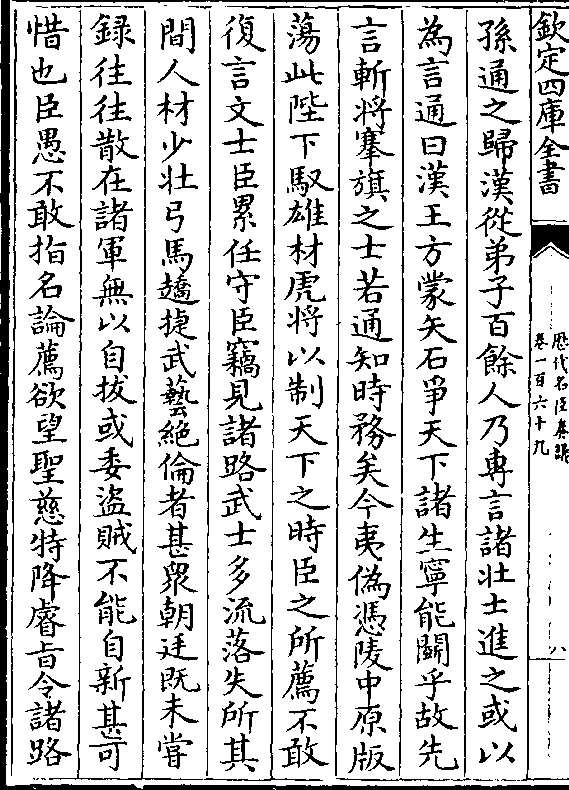 欽定四庫全書
歷代名臣奏議
卷一百六十九
八
孫通之歸漢從弟子百餘人乃專言諸壯士進之或以
為言通曰漢王方蒙矢石爭天下諸生寧能鬭乎故先
言斬将搴旗之士若通知時務矣今夷偽憑陵中原版
蕩此陛下馭雄材虎将以制天下之時臣之所薦不敢
復言文士臣累任守臣竊見諸路武士多流落失所其
間人材少壮弓馬趫捷武藝絶倫者甚衆朝廷既未嘗
録往往散在諸軍無以自拔或委盗賊不能自新甚可
惜也臣愚不敢指名論薦欲望聖慈特降睿旨令諸路